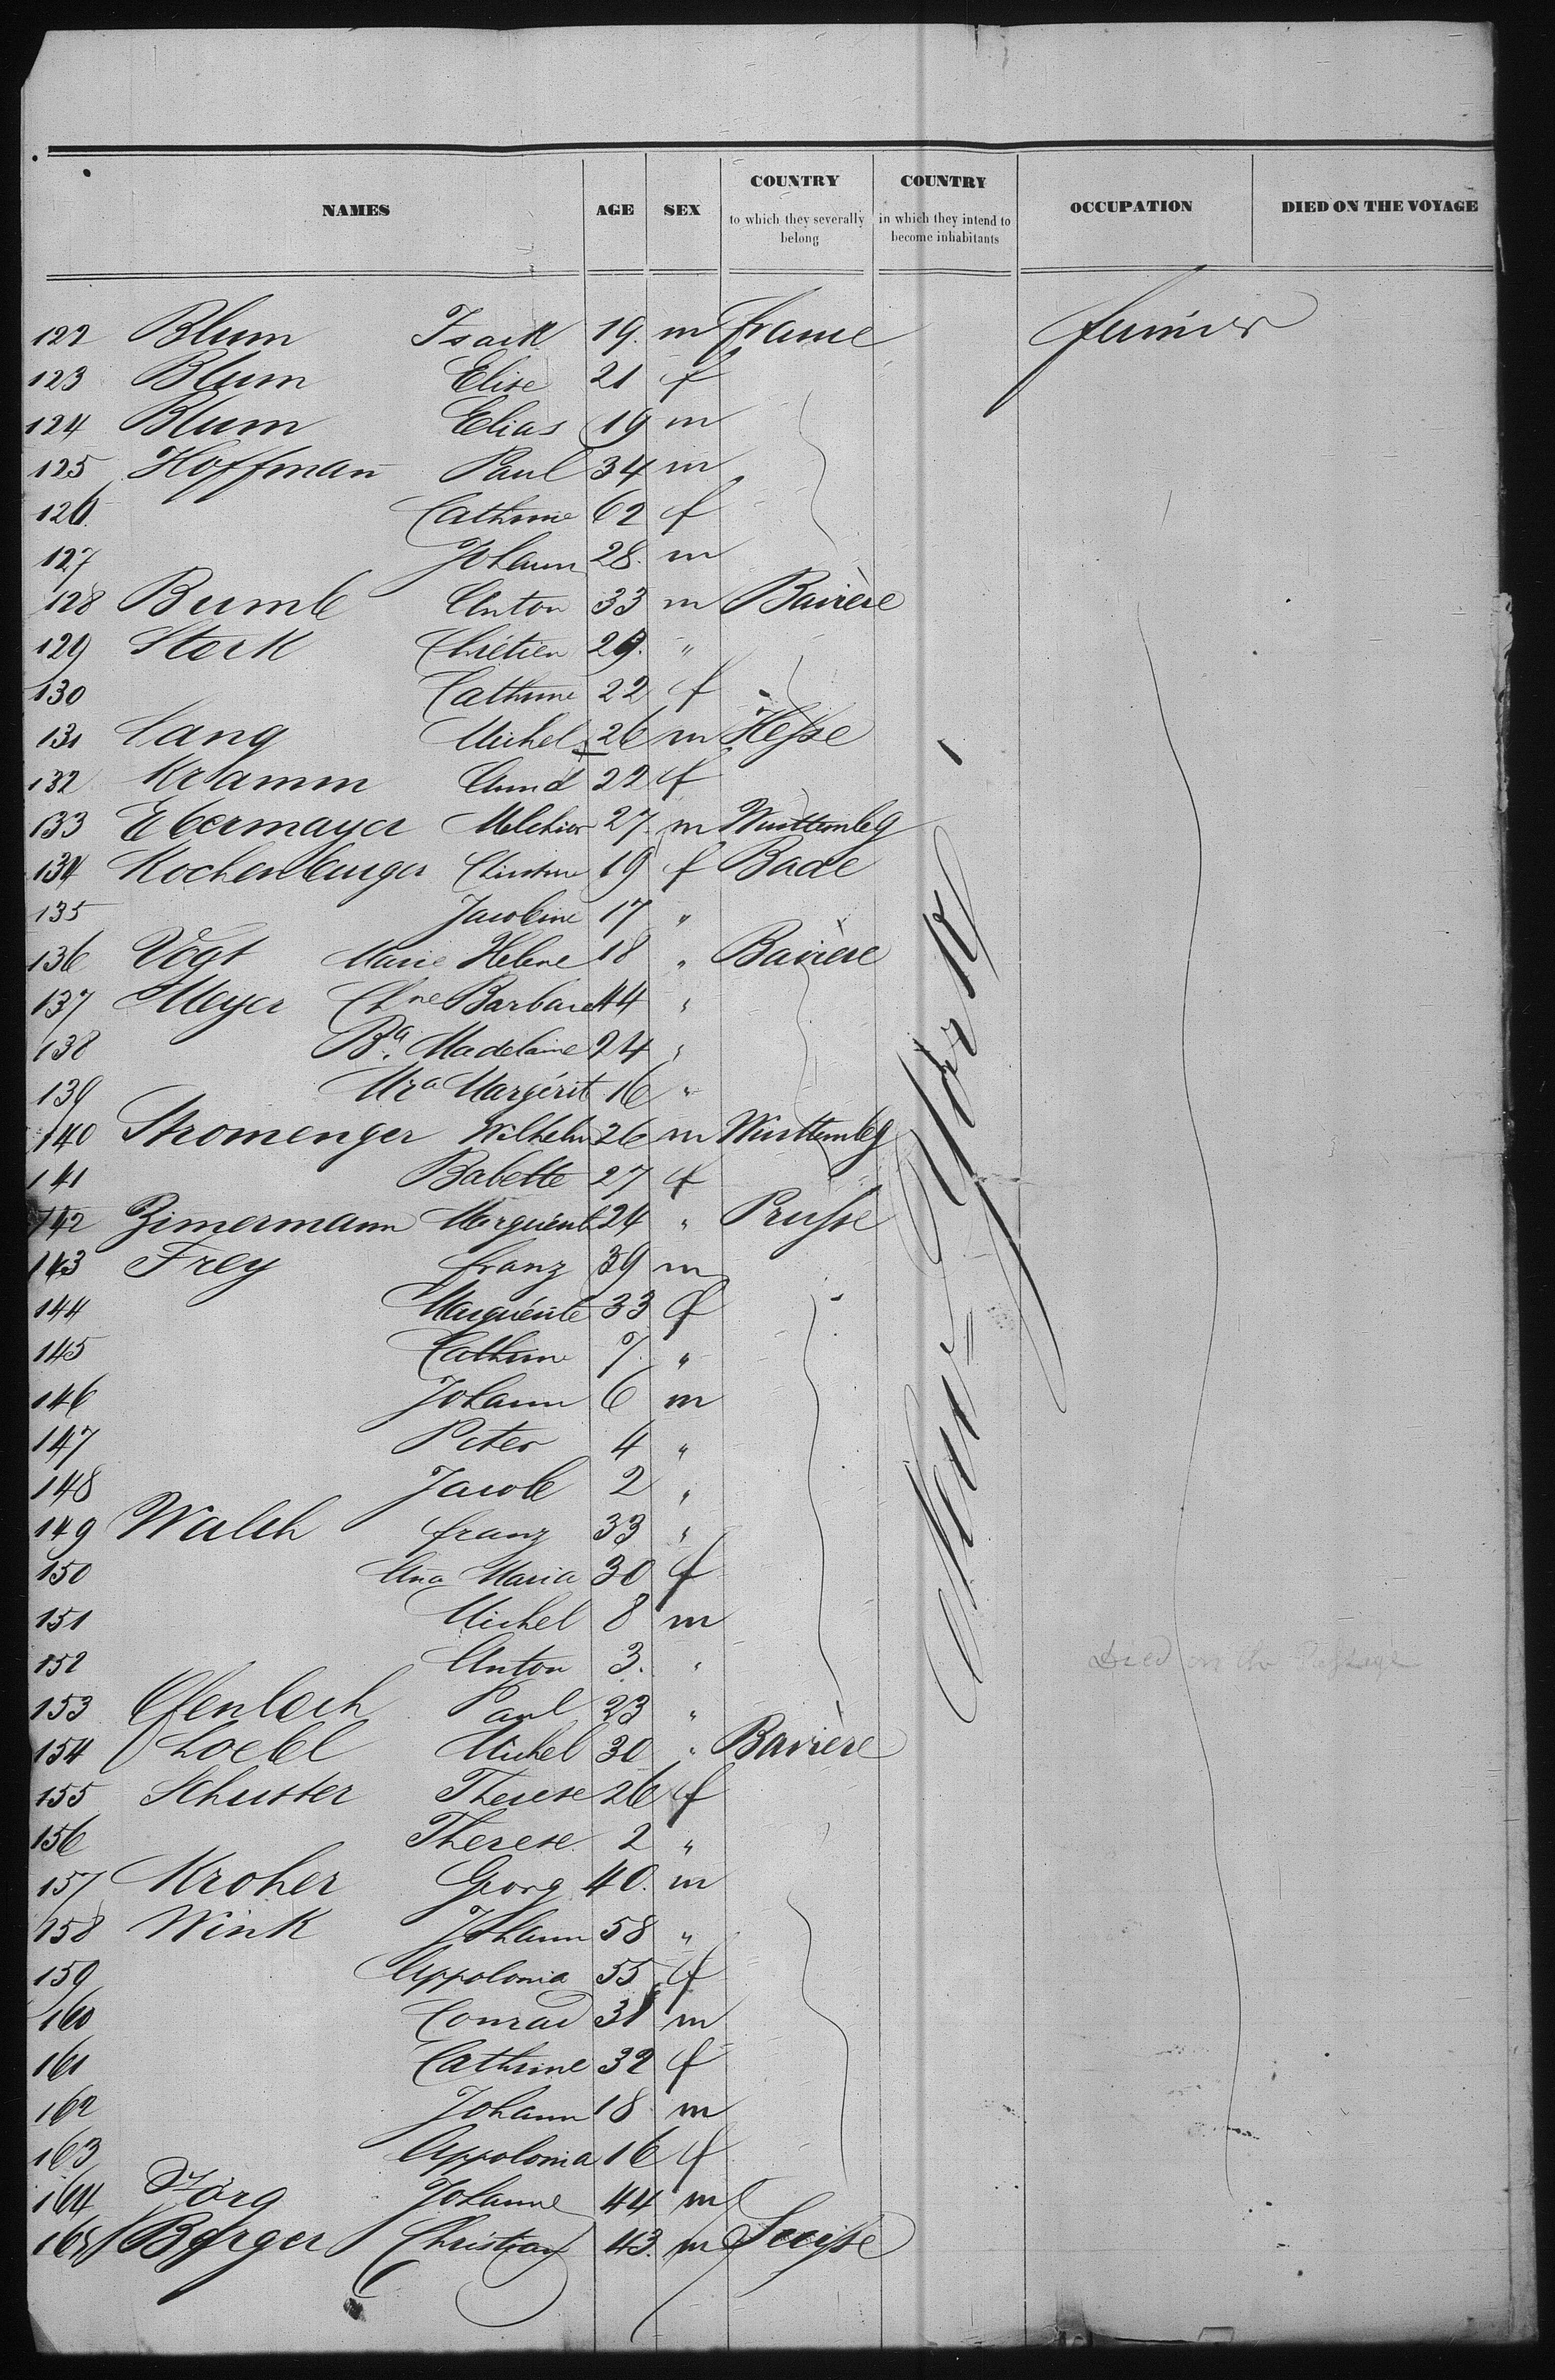 NAMES AGE SEX COUNTRY to which they severally belong COUNTRY in which they intend to become inhabitants OCCUPATION DIED ON THE VOYAGE
122 Blum Isack 19. m france
123 Blum Elise 21 f
124 Blum Elias 19 m
125 Hoffman Paul 34 m
126 Cathrine 62 f
127 Johann 28. m
128 Bumb Anton 33 m Bavière
129 Stork Chrétien 29. "
130 Cathrine 22 f
131 Lang Michel 26 m Hesse
132 Kramm 22 f
133 Ebermayer Melchior 27. m Württembg
134 Kochenburger Christine 19 f Bade
135 Jacobine 17 "
136 Vogt Marie Helene 18 " Bavière
137 Meyer Chne Barbara 44 "
138 Ba. Madelaine 24 "
139 Mra Margérit 16 "
140 Stromenger Wilhelm 26 m Württembg
141 Babette 27 f
142 Zimermann Marguérit 24 " Prusse
143 Frey franz 39 m
144 Marguérite 33 f
145 Cathrine 7. "
146 Johann 6 m
147 Peter 4 "
148 Jacob 2 "
149 Walch franz 33 "
150 Ana Maria 30 f
151 Michel 8 m
152 Anton 3. " Died on the Passage
153 Ofenloch Paul 23 "
154 Loebl Michel 30 " Bavière
155 Schuster Therese 26 f
156 Therese 2 "
157 Kroher Georg 40. m
158 Wink Johann 58 "
159 Appolonia 55 f
160 Conrad 31 m
161 Cathrine 32 f
162 Johann 18 m
163 Appolonia 16 f
164 Jorg Johanne 44 m
165 Berger Christian 43. m Suisse
New-York